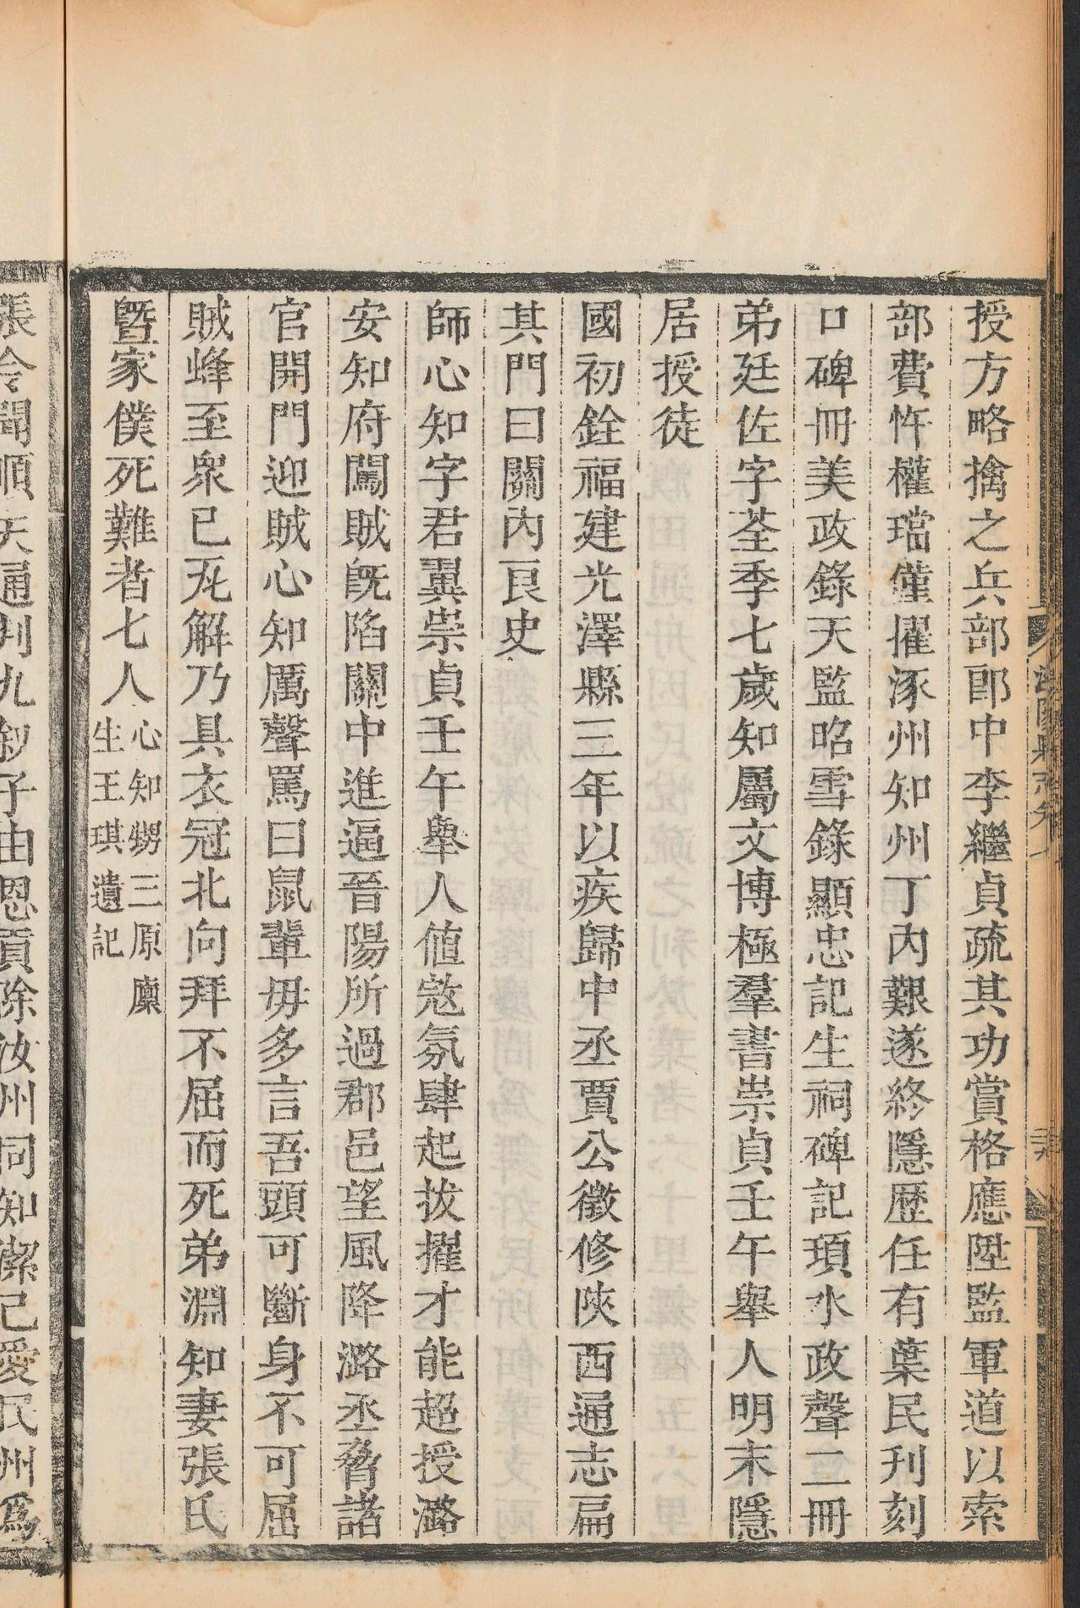 授方略擒之兵部郎中李繼貞疏其功賞格應陞監軍道以索
部費忤權璫僅擢涿州知州丁內艱遂終隱歷任有葉民刊刻
口碑冊美政錄天監昭雪錄顯忠記生祠碑記項水政聲二冊
弟廷佐字荃季七歲知屬文博極羣書崇貞壬午舉人明末隱
居授徒
國初銓福建光澤縣三年以疾歸中丞賈公徵修陝西通志扁
其門曰關內良史
師心知字君翼崇貞壬午舉人値㓂氛肆起拔擢才能超授潞
安知府闖賊旣陷關中進逼晉陽所過郡邑望風降潞丞脅諸
官開門迎賊心知厲聲罵曰鼠輩毋多言吾頭可斷身不可屈
賊蜂至衆已瓦解乃具衣冠北向拜不屈而死弟淵知妻張氏
曁家僕死難者七人心知甥三原廩
生王琪遺記
張令聞順天通判九敘子由恩貢除汝州同知潔己愛民州爲